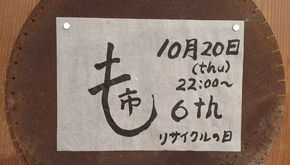 も市
10月20日
(thu)
22:00〜
6th
リサイクルの日